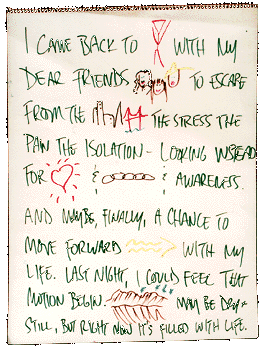 I CAME BACK TO WITH MY
DEAR FRIENDS TO ESCAPE
FROM THE THE STRESS THE
PAIN THE ISOLATION - LOOKING INSTEAD
FOR & & AWARENESS.
AND MAYBE, FINALLY, A CHANCE TO
MOVE FORWARD WITH MY
LIFE. LAST NIGHT, I COULD FEEL THAT
MOTION BEGIN MAY BE DRY &
STILL, BUT RIGHT NOW IT'S FILLED WITH LIFE.